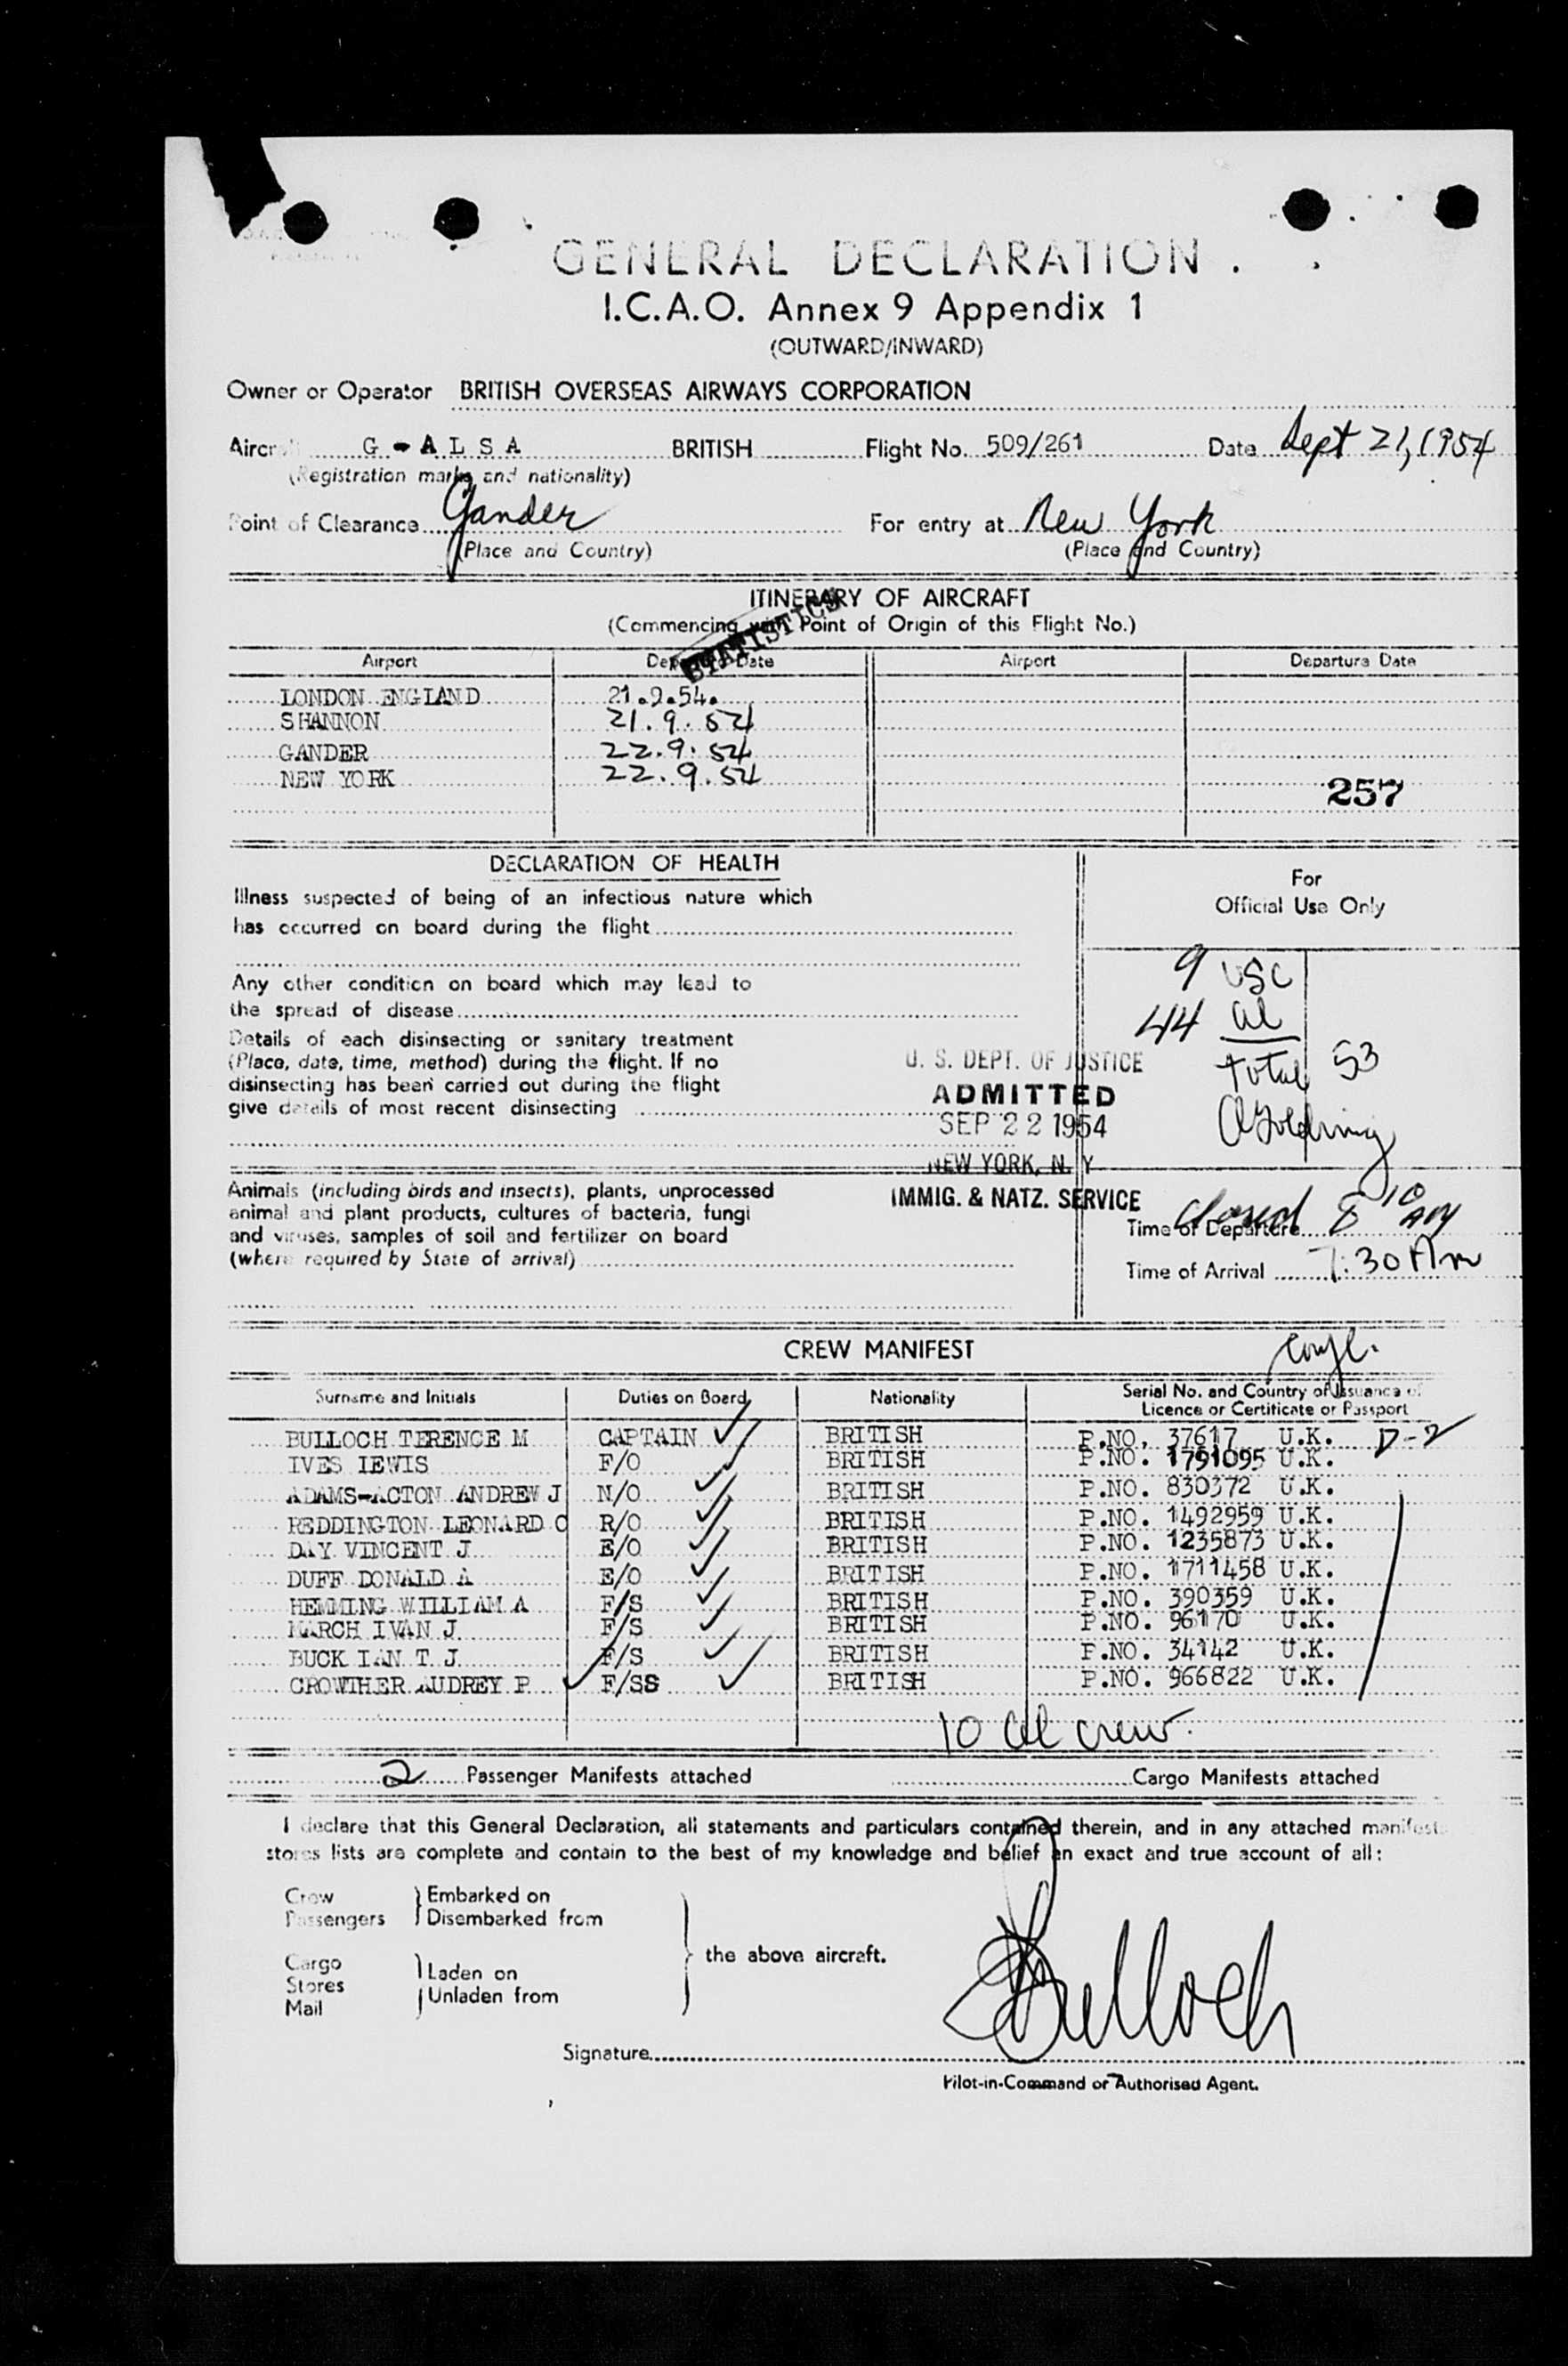 GENERAL DECLARATION
I.C.A.O. Annex 9 Appendix 1
(OUTWARD/INWARD)
Owner or Operator BRITISH OVERSEAS AIRWAYS CORPORATION
Aircraft G-ALSA BRITISH Flight No. 509/261 Date Sept 21, 1954
(Registration marks and nationality)
Point of Clearance Gander For entry at New York
(Place and Country) (Place and Country)
ITINERARY OF AIRCRAFT
(Commencing with Point of Origin of this Flight No.)
STATISTICS
Airport Departure Date Airport Departure Date
LONDON ENGLAND 21.9.54.
SHANNON 21.9.54
GANDER 22.9.54
NEW YORK 22.9.54
257
DECLARATION OF HEALTH
For
Official Use Only
Illness suspected of being of an infectious nature which
has occurred on board during the flight
Any other condition on board which may lead to
the spread of disease
9 USC
44 al
total 53
Details of each disinsecting or sanitary treatment
(Place, date, time, method) during the flight. If no
disinsecting has been carried out during the flight
give details of most recent disinsecting
U. S. DEPT. OF JUSTICE
ADMITTED
SEP 22 1954
NEW YORK, N. Y
IMMIG. & NATZ. SERVICE
Animals (including birds and insects), plants, unprocessed
animal and plant products, cultures of bacteria, fungi
and viruses, samples of soil and fertilizer on board
(where required by State of arrival)
Time of Departure closed 8 10 AM
Time of Arrival 7:30 Am
CREW MANIFEST
Surname and Initials Duties on Board Nationality Serial No. and Country of Issuance of
Licence or Certificate or Passport
BULLOCH TERENCE M CAPTAIN BRITISH P.NO. 37617 U.K. D-2
IVES LEWIS F/O BRITISH P.NO. 1791095 U.K.
ADAMS-ACTON ANDREW J N/O BRITISH P.NO. 830372 U.K.
REDDINGTON LEONARD C R/O BRITISH P.NO. 1492959 U.K.
DAY VINCENT J E/O BRITISH P.NO. 1235873 U.K.
DUFF DONALD A E/O BRITISH P.NO. 1711458 U.K.
HEMMING WILLIAM A F/S BRITISH P.NO. 390359 U.K.
MARCH IVAN J F/S BRITISH P.NO. 96170 U.K.
BUCK IAN T J F/S BRITISH P.NO. 34142 U.K.
CROWTHER AUDREY P F/SS BRITISH P.NO. 966822 U.K.
10 al crew.
2 Passenger Manifests attached Cargo Manifests attached
I declare that this General Declaration, all statements and particulars contained therein, and in any attached manifest
stores lists are complete and contain to the best of my knowledge and belief an exact and true account of all:
Crew Embarked on
Passengers Disembarked from
the above aircraft.
Cargo
Stores Laden on
Mail Unladen from
Bulloch
Signature
Pilot-in-Command or Authorised Agent.